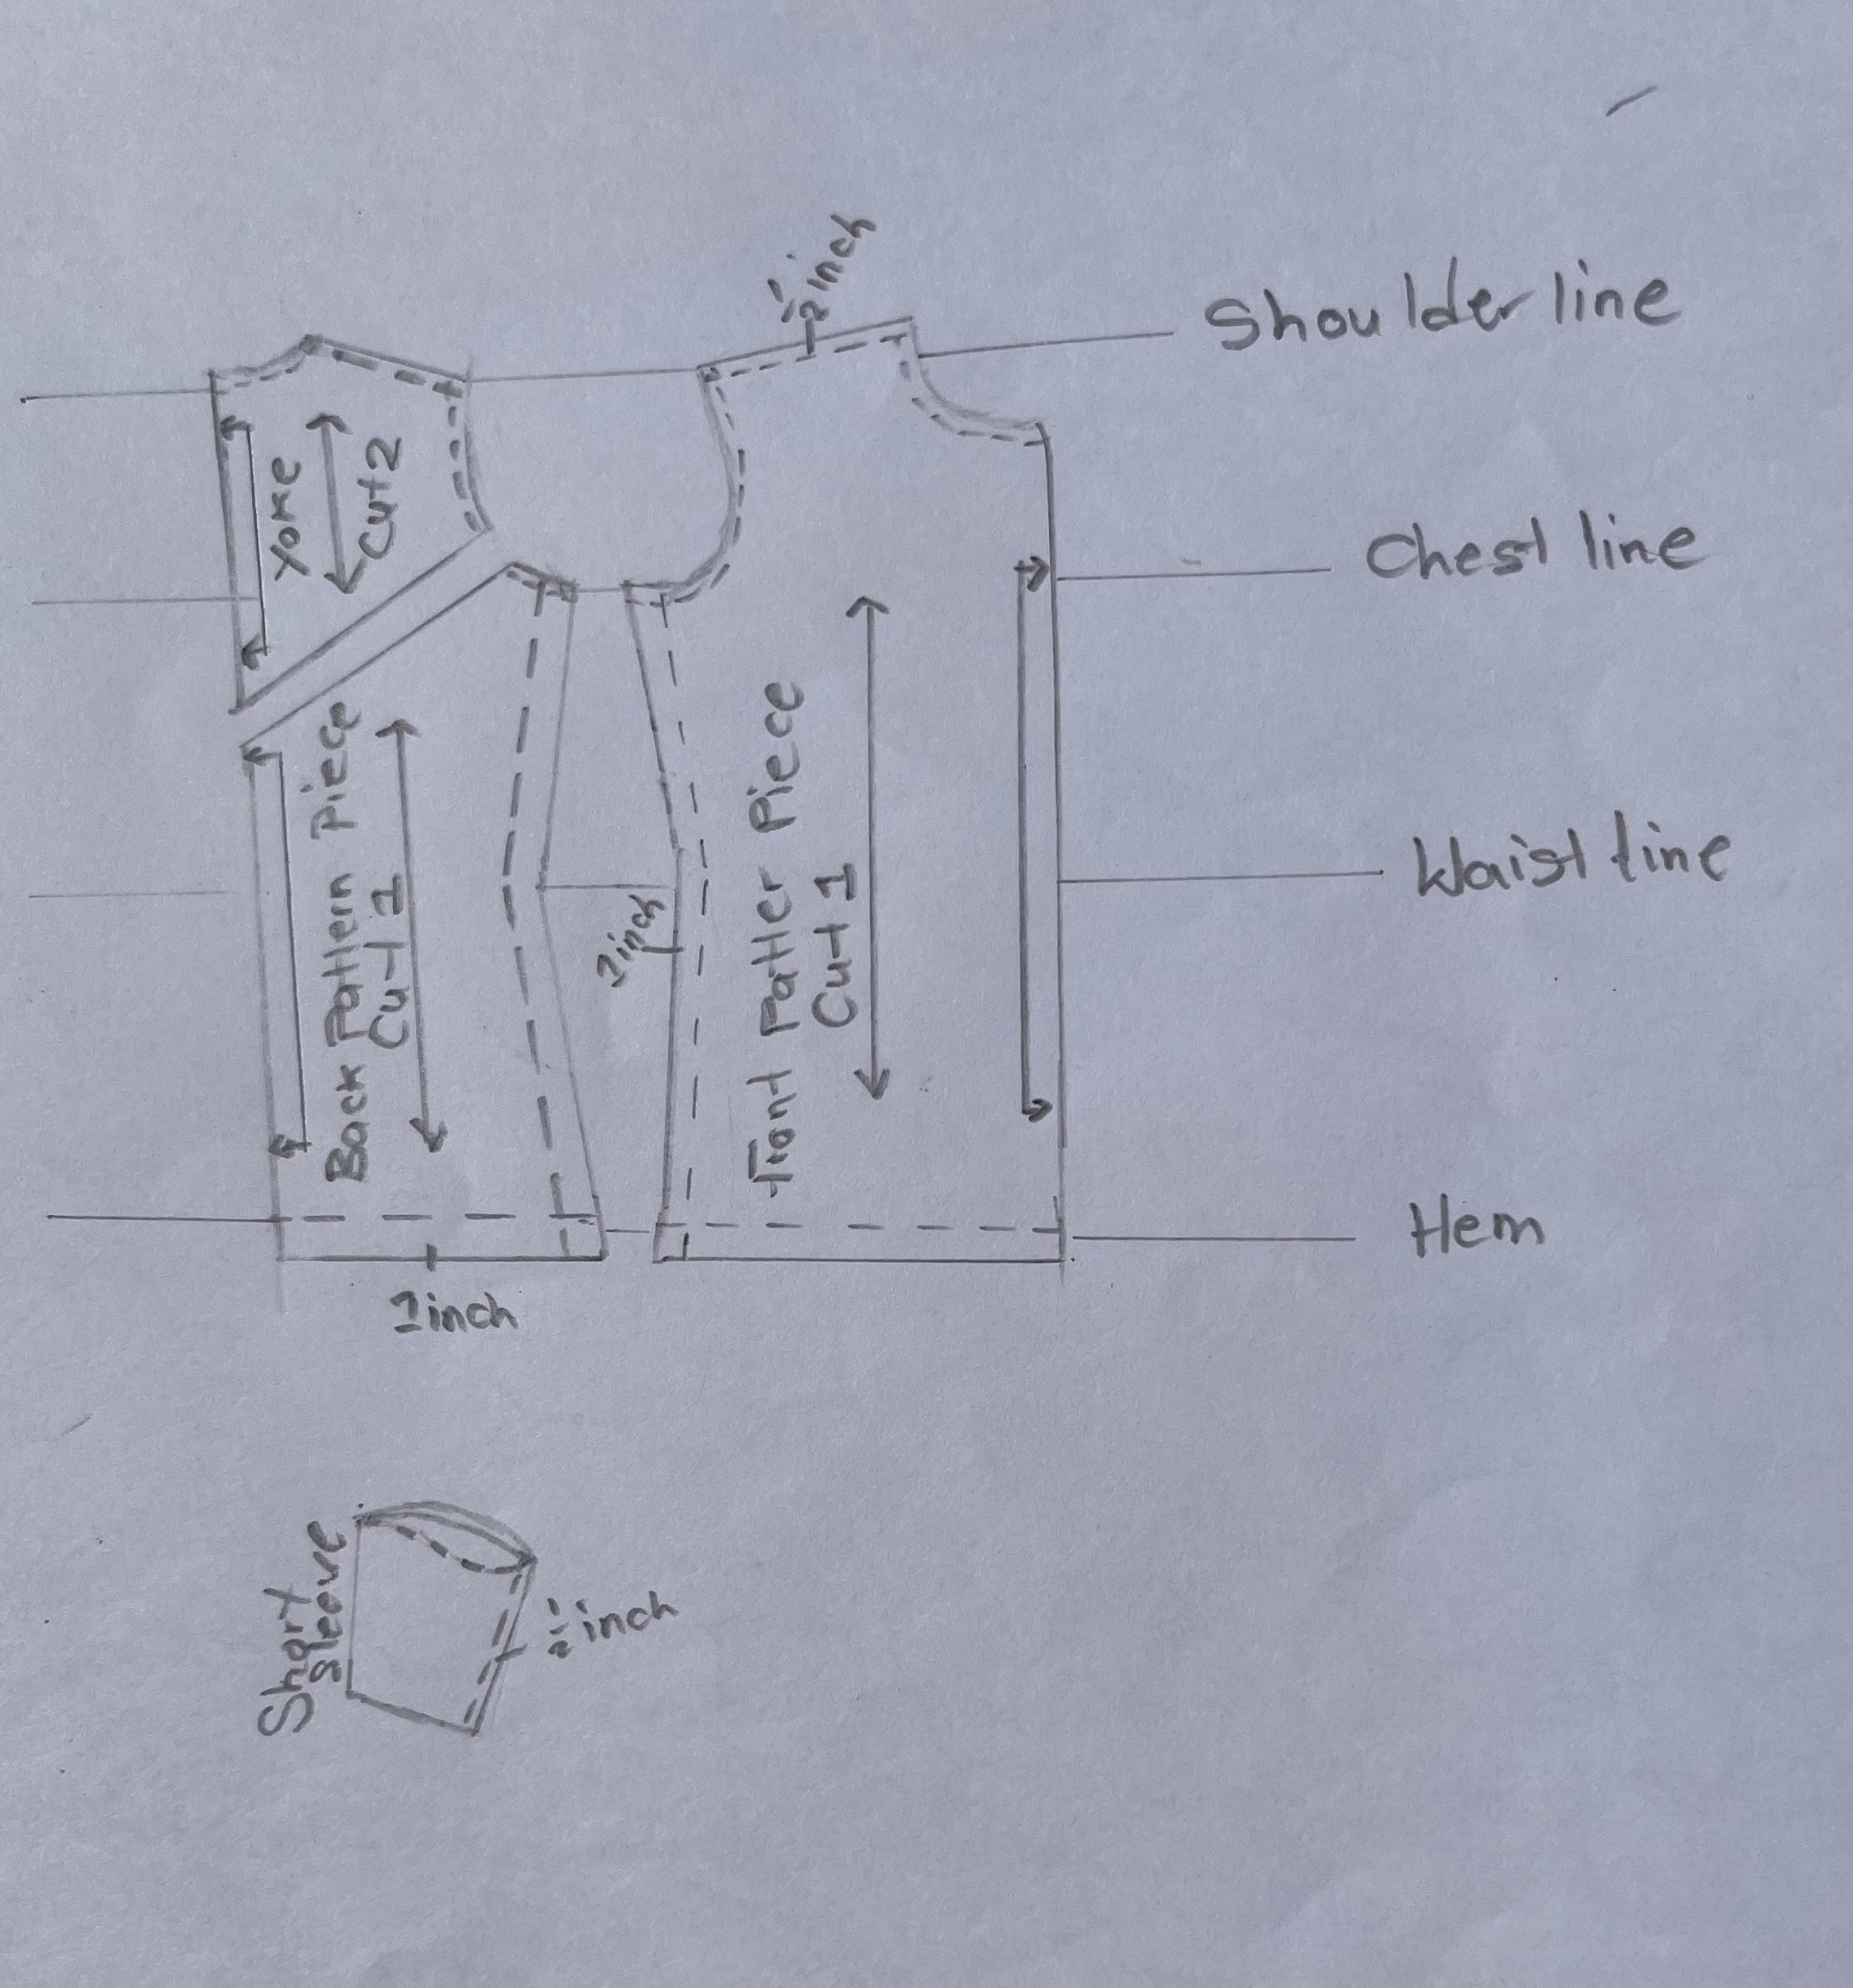 ½ inch
Shoulder line
Yoke
Cut 2
Chest line
Back Pattern Piece
Cut 1
Front Patter Piece
Cut 1
Waist line
1inch
Hem
1inch
Short
Sleeve
½ inch